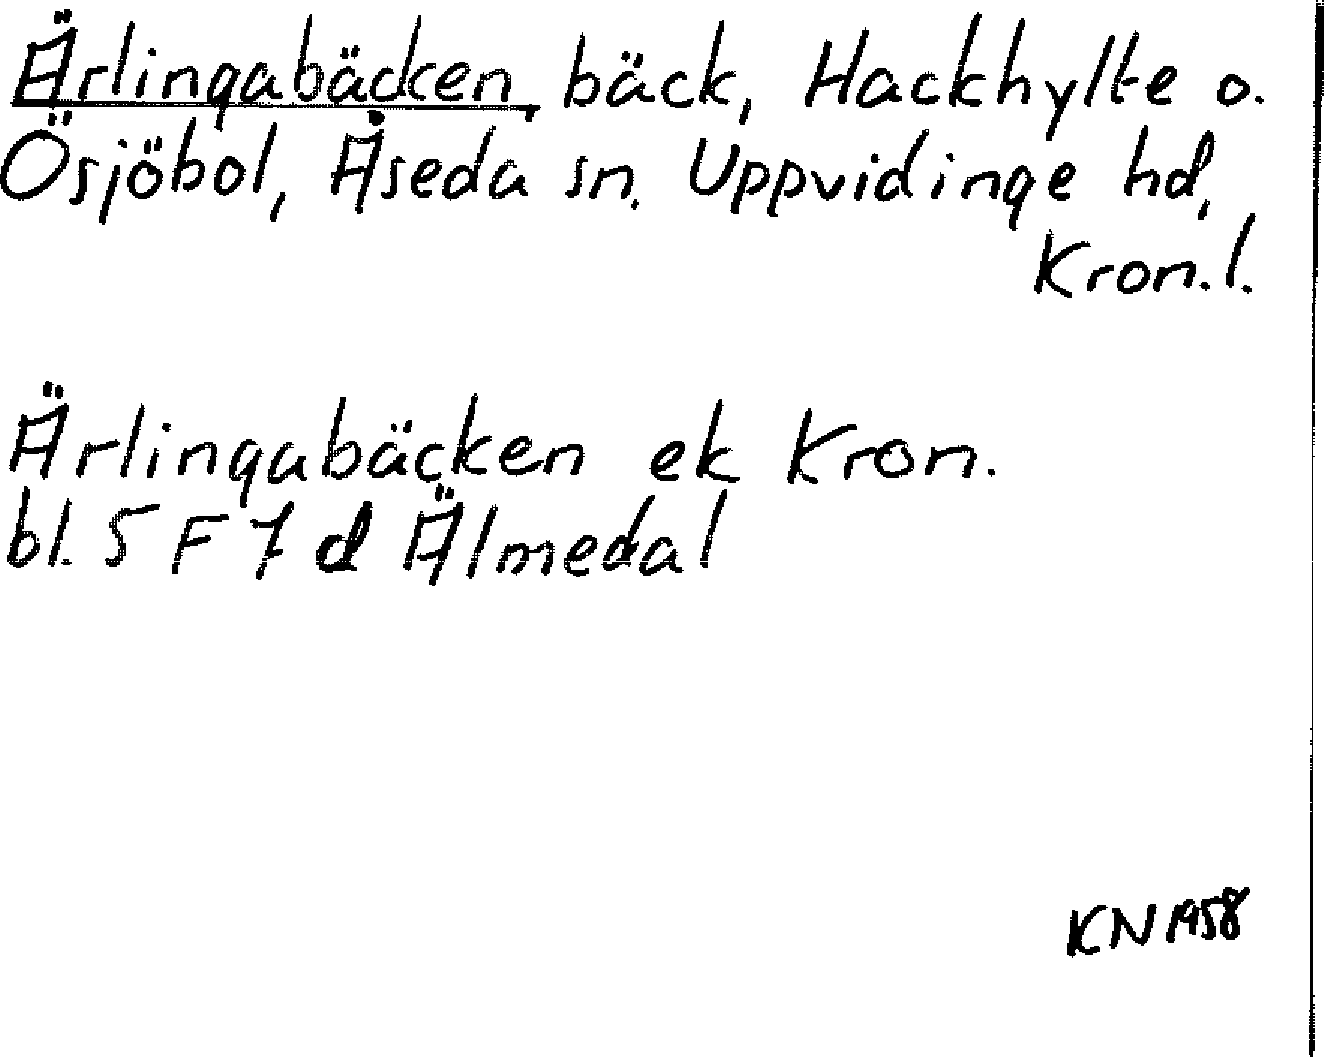 Ärlingabäcken, bäck, Hackhylte o.
Ösjöbol, Åseda sn. Uppvidinge hd,
Kron. l.
Ärlingabäcken ek Kron.
bl. 5 F 7 d Älmedal
KN 1958